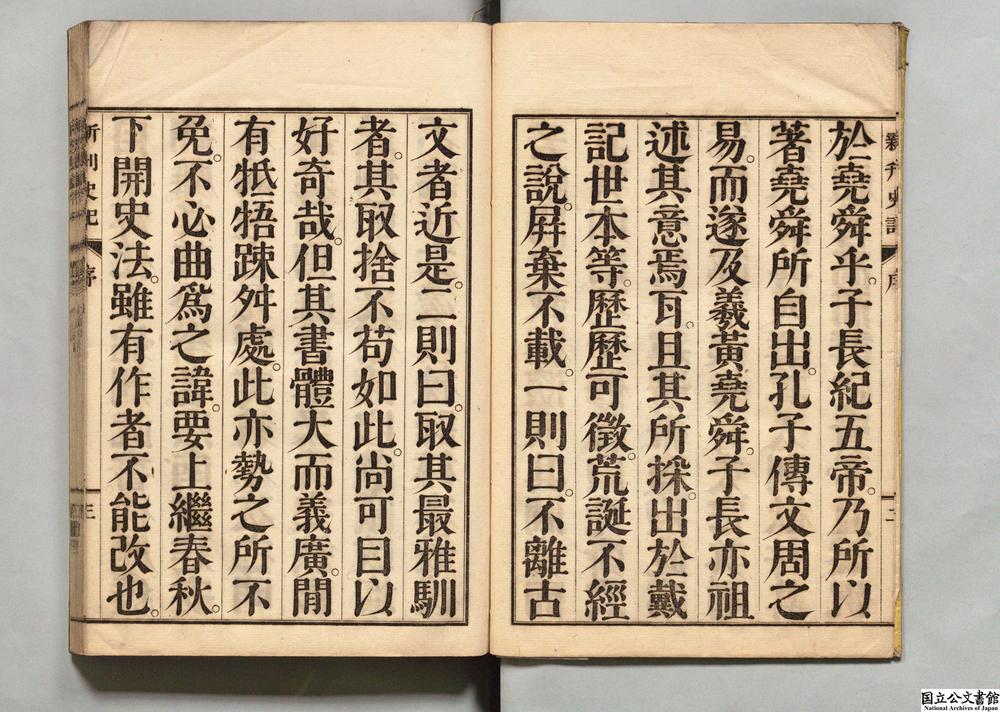 於堯舜乎。子長紀五帝。乃所以
著堯舜所自出。孔子傳文周之
易。而遂及羲黃堯舜。子長亦祖
述其意焉耳。且其所採。出於戴
記世本等。歷歷可徵。荒誕不經
之說。屛棄不載。一則曰。不離古
文者近是。二則曰。取其最雅馴
者。其取捨不苟如此。尚可目以
好奇哉。但其書體大而義廣。閒
有牴牾踈舛處。此亦勢之所不
免。不必曲爲之諱。要上繼春秋。
下開史法。雖有作者不能改也。
新刊史記
序
三
序
二
国立公文書館
National Archives of Japan